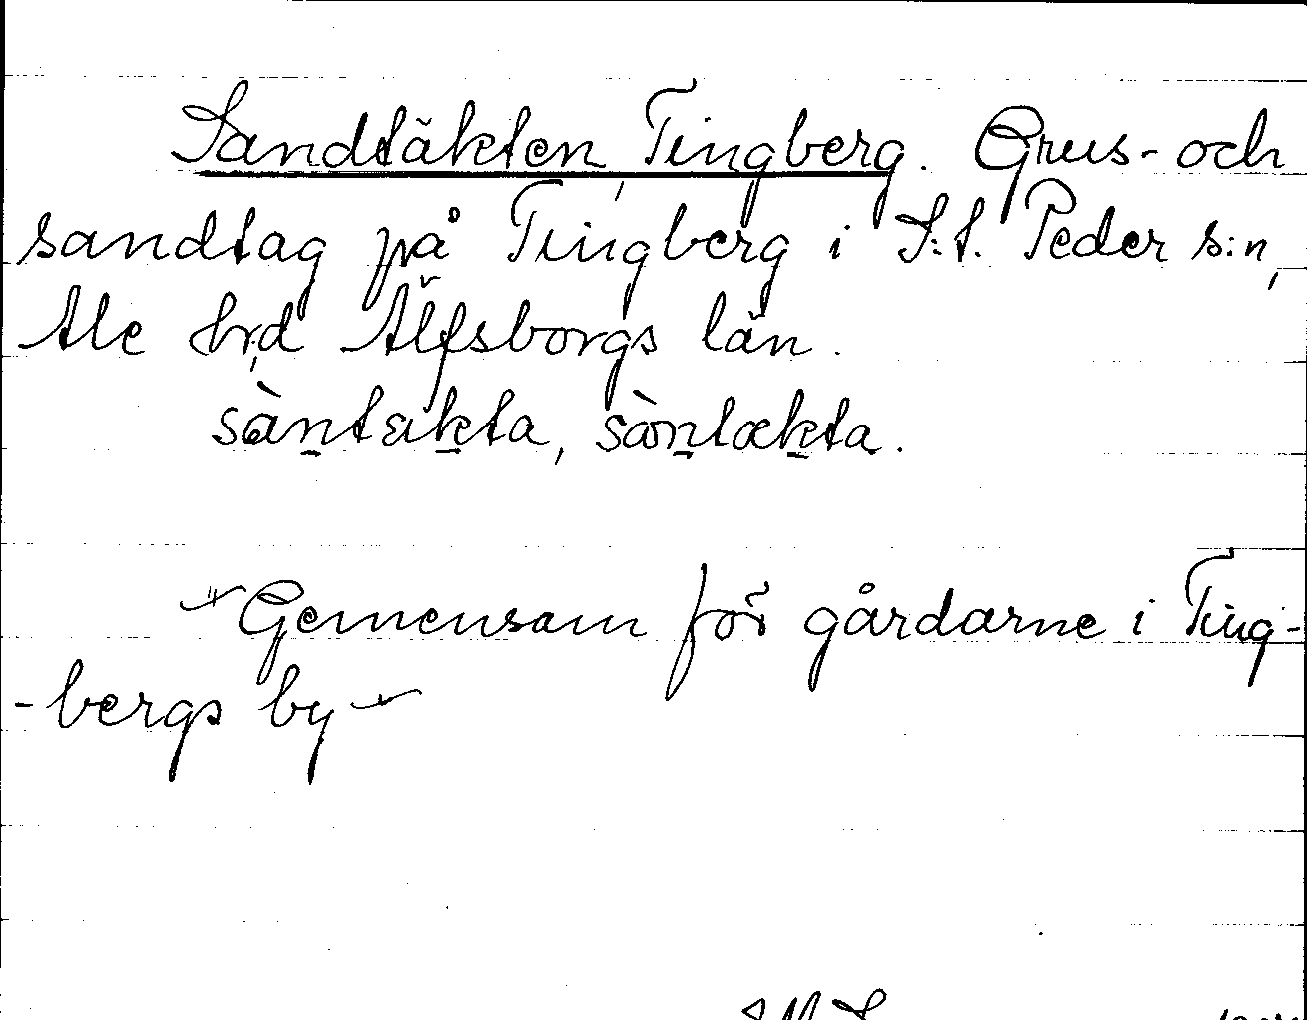 Sandtäkten, Tingberg. Grus- och
sandtag på Tingberg i S:t. Peder s:n,
Ale hrd Älfsborgs län.
sàntækta, sàntækta.
"Gemensam för gårdarne i Ting-
-bergs by"